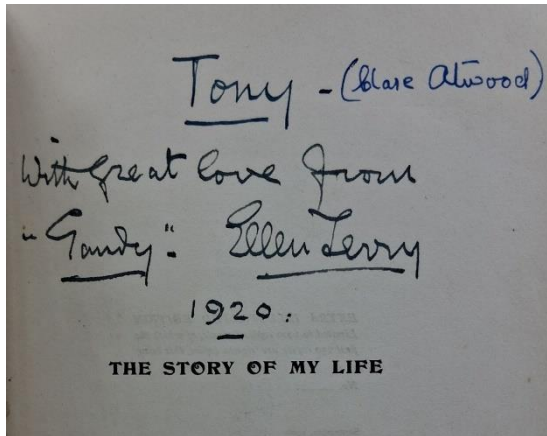 Tony - (Clare Atwood)
With great love from
"Gandy". Ellen Terry
1920.
THE STORY OF MY LIFE